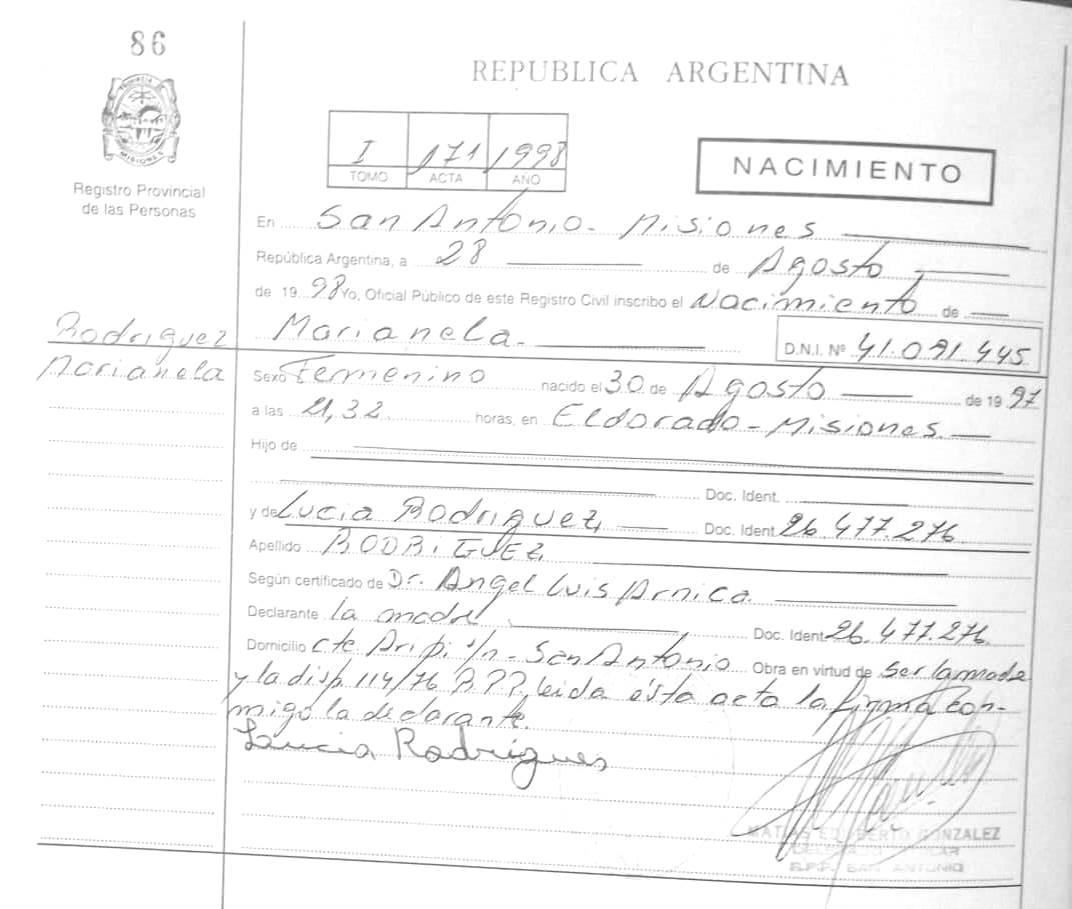 86
REPUBLICA ARGENTINA
PROVINCIA DE
MISIONES
Registro Provincial
de las Personas
I 171 1998
TOMO ACTA AÑO
NACIMIENTO
En San Antonio - Misiones
República Argentina, a 28 de Agosto
de 19 98 Yo, Oficial Público de este Registro Civil inscribo el Nacimiento de
Rodriguez
Marianela
Marianela.
D.N.I. Nº 41.091.445
Sexo Femenino nacido el 30 de Agosto de 19 97
a las 21,32 horas, en Eldorado - Misiones.
Hijo de
Doc. Ident.
y de Lucia Rodriguez, Doc. Ident. 26.477.276
Apellido RODRIGUEZ
Según certificado de Dr. Angel Luis Arnica
Declarante la madre Doc. Ident. 26.477.276
Domicilio s/n - San Antonio Obra en virtud de Ser la madre
y la disp. 114/76 leida ésta acta la firma con-
migo la declarante.
Lucia Rodrigues
GONZALEZ
SAN ANTONIO